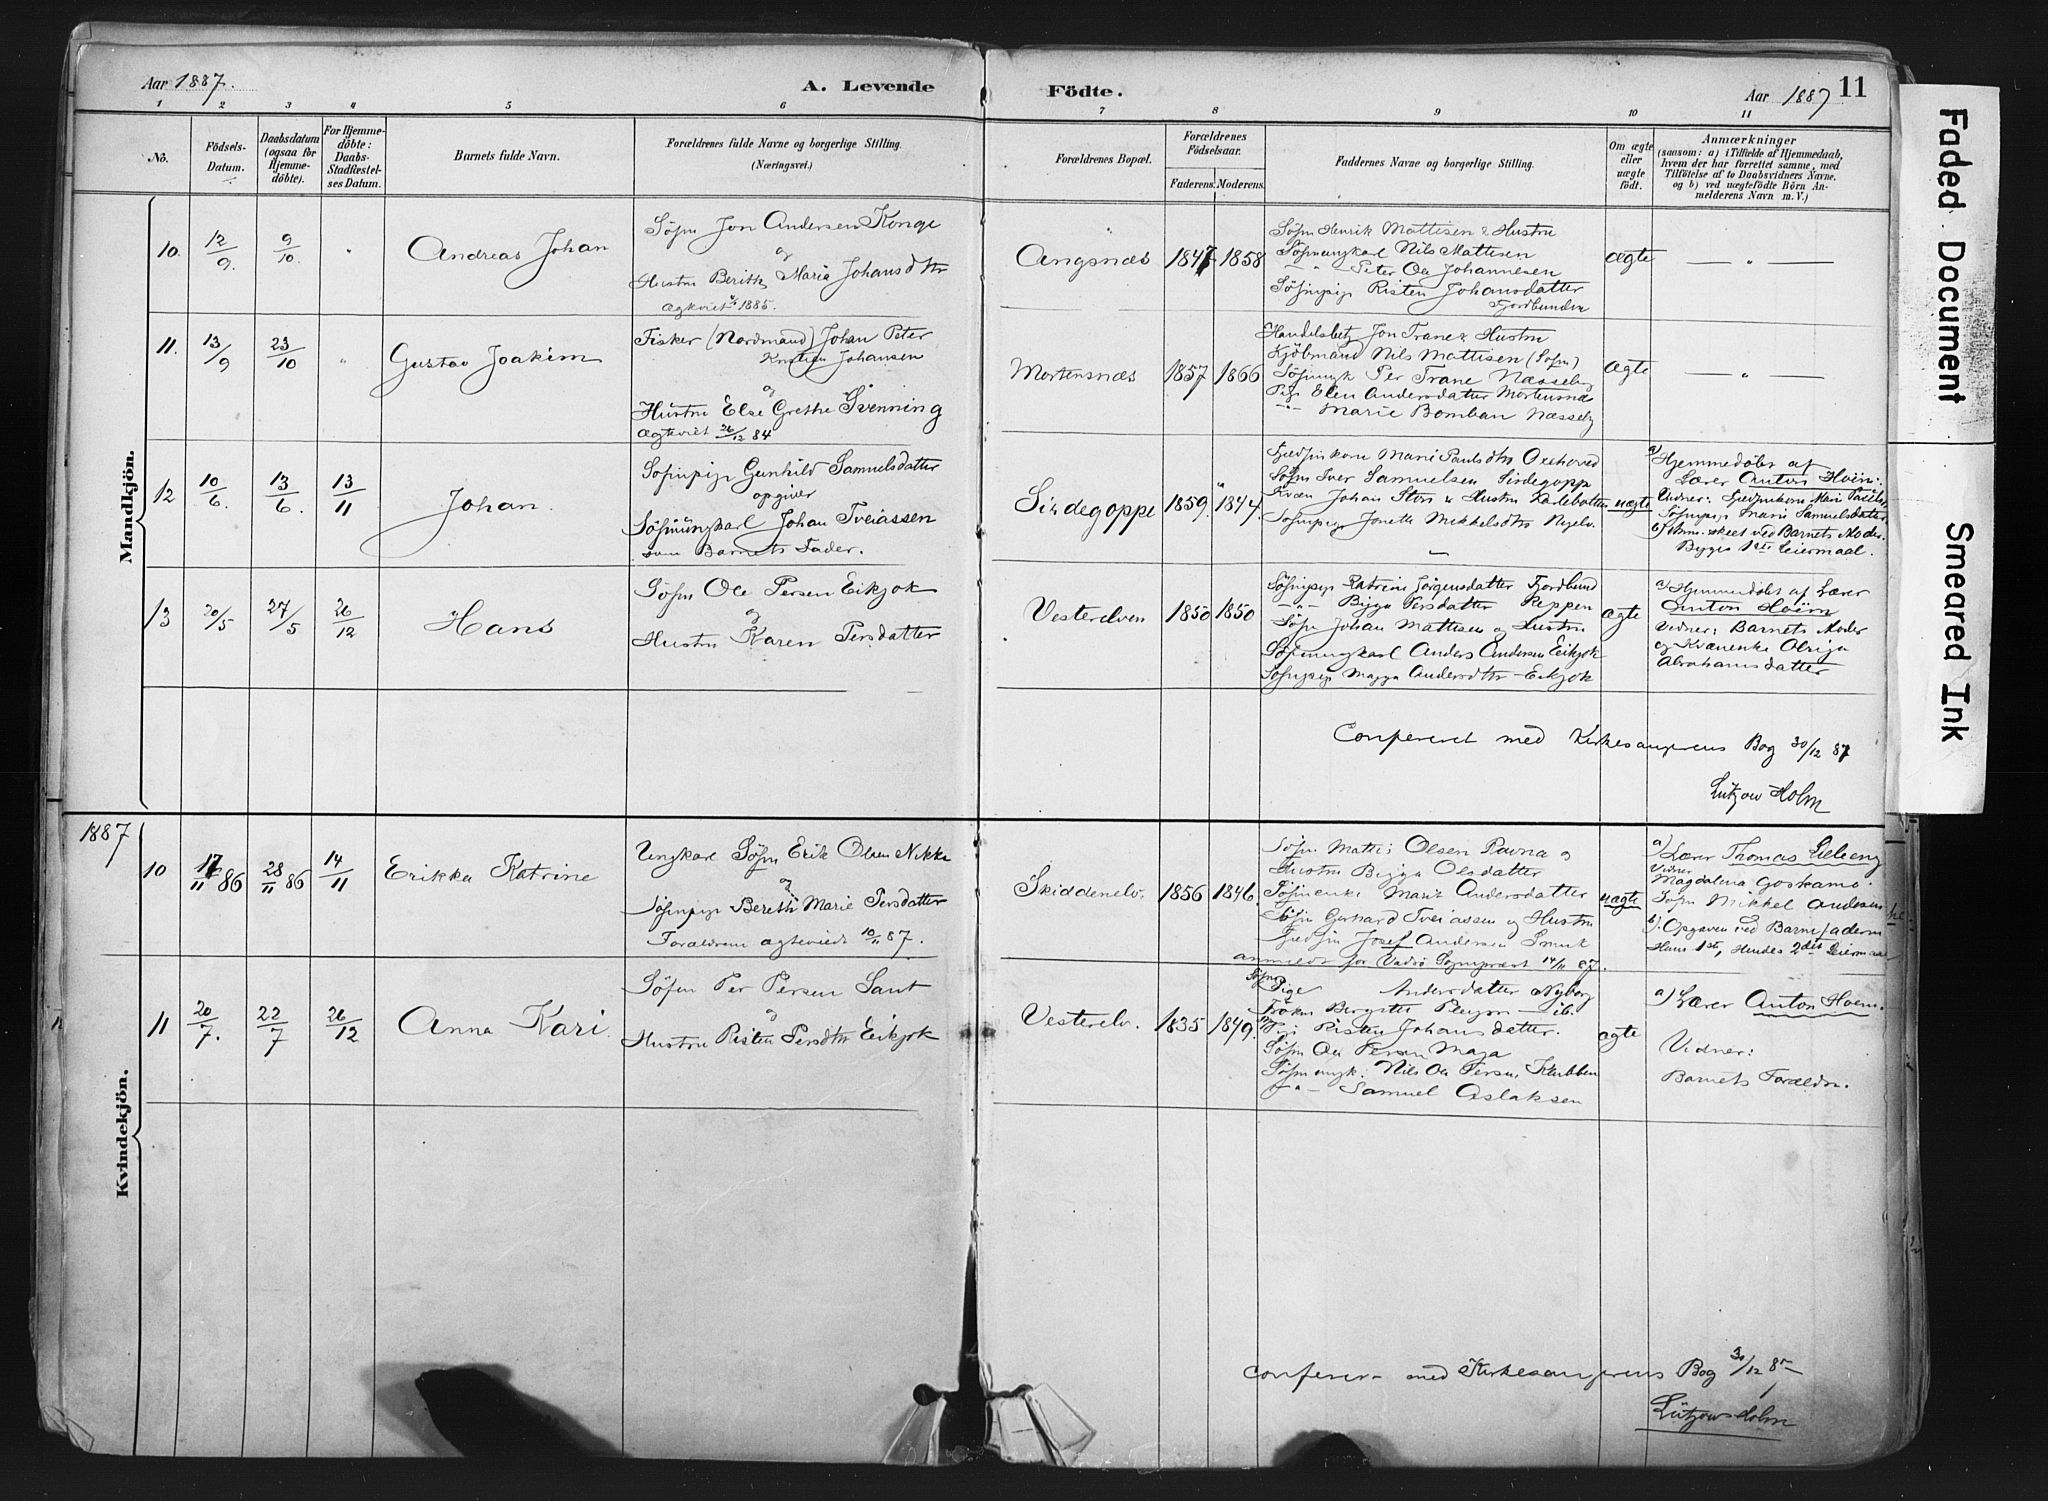 Aar 1887.
A. Levende
Födte.
Aar 1887
11
1 2 3 4 5 6 7 8 9 10 11
No.
Födsels-
Datum.
Daabsdatum
(ogsaa for
Hjemme-
döbte).
For Hjemme-
döbte:
Daabs-
Stadfæstel-
ses Datum.
Barnets fulde Navn.
Forældrenes fulde Navne og borgerlige Stilling.
(Næringsvei.)
Forældrenes Bopæl.
Forældrenes
Födselsaar.
Faderens. Moderens.
Faddernes Navne og borgerlige Stilling.
Om ægte
eller
uægte
födt.
Anmærkninger
(saasom: a) i Tilfælde af Hjemmedaab,
hvem der har forrettet samme, med
Tilföielse af to Daabsvidners Navne,
og b) ved uægtefödte Börn An-
melderens Navn m. V.)
Mandkjön.
10. 12/9. 9/10. "
Andreas Johan
Söfin Jon Andersen Konge
og
Hustru Berith Maria Johansdtr
ægteviet 1885.
Angsnæs
1847 1858
Söfin Henrik Mattisen & Hustru
Söfinungkarl Nils Mattisen
— " — Peter Ole Johannesen
Söfinpige Risten Johansdatter
Fjordbunden
ægte
— " —
11. 13/9 23/10 "
Gustav Joakim
Fisker (Nordmand) Johan Peter
Kristian Johansen
og
Hustru Else Grethe Svenning
ægteviet 26/12 84
Mortensnæs
1857 1866
Handelsbetj Jon Trane & Hustru
Kjöbmand Nils Mattisen (Söfin)
Söfinungk Per Trane Næsseby
Pige Elen Andersdatter Mortensnæs
— " — Marie Bomban Næsseby
ægte
— " —
12 10/6. 13/6. 13/11
Johan.
Söfinpige Gunhild Samuelsdatter
opgiver
Söfinungkarl Johan Tveiassen
som Barnets Fader.
Sirdegoppe
1859. 1844.
Marie Paulsdtr Oxehoved
Söfin Iver Samuelsen Sirdegopp
Kvæn Johan & Hustru
Söfinpige Mikkelsdtr Nyelv.
uægte
a) Hjemmedöbt af
Lærer Anton Hoëm.
Vidner:
Söfinpige Marie Samuelsdatter
b) Anm. skeet ved Barnets Moder.
1ste Leiermaal.
13 20/5 27/5 26/12
Hans
Söfin Ole Persen Eikjok
og
Hustru Karen Persdatter
Vesterelven
1850 1850
Söfinpige Katrine Jörgensdatter Fjordbund
— " — Bigga Persdatter Reppen
Söfin Johan Mattisen og Hustru
Söfinungkarl Anders Andersen Eikjok
Söfinpige Magga Andersdtr — Eikjok
ægte
a) Hjemmedöbt af Lærer
Anton Hoëm
Vidner: Barnets Moder
og Kvænenke
Abrahamsdatter
Confereret med Kirkesangerens Bog 30/12 87
Lützow Holm
1887
Kvindekjön.
10 17/11 86 28/11 86 14/11
Erikka Katrine
Ungkarl Söfin Erik Olsen Nikka
og
Söfinpige Berethe Marie Persdatter
Forældrene ægteviede 10/11 87.
Skiddenelv.
1856 1846.
Söfin Mathis Olsen Ravna og
Hustru Bigga Olsdatter
Söfinenke Marit Andersdatter
Söfin Gerhard Tveiassen og Hustru
Josef Andersen Smuk
anmeldt for Vadsö Sognepræst 14/11 87.
uægte
a) Lærer Thomas
Vidner
Magdalena
Söfin Mikkel Andersen
b). Opgaven ved Barnefaderen
Hans 1ste, Hendes 2det Leiermaal
11 20/7. 22/7 26/12
Anna Kari
Söfin Per Persen Sant
og
Hustru Risten Persdtr Eikjok
Vesterelv.
1835 1849.
Söfin
Pige Andersdatter Nyborg
Fröken Bergitte — ib.
Risten Johansdatter.
Söfin Ole Persen Maja
Söfinungk. Nils Ole Persen, Klubben
— " — Samuel Aslaksen
ægte
a) Lærer Anton Hoëm.
Vidner:
Barnets Forældre.
Conferer— med Kirkesangerens Bog 30/12 87
Lützow Holm
Faded Document
Smeared Ink